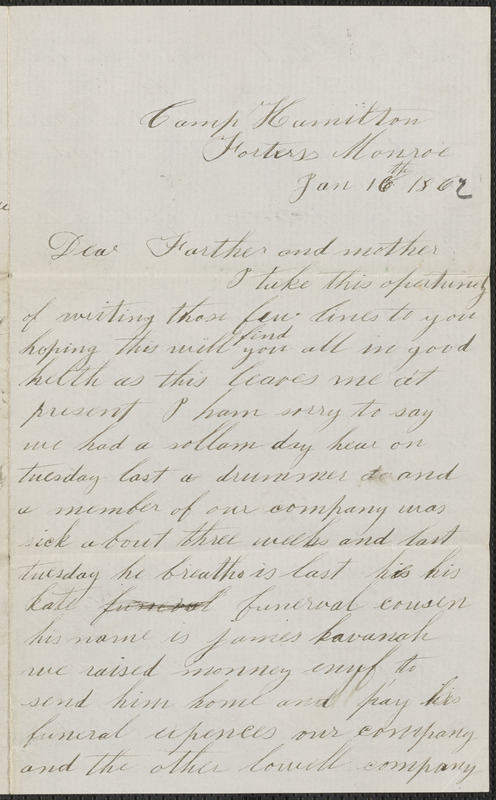 Camp Hamilton
Forters Monroe
Jan 16th 1862
Dear Farther and mother
I take this opertunity
of writing those few lines to you
hoping this will find you all in good
helth as this leaves me at
present I ham sorry to say
we had a sollam day hear on
tuesday last a drummer and
a member of our company was
sick about three weeks and last
tuesday he breath is last his
kate funeral funerval cousen
his name is james kavanah
we raised monney enuf to
send him home and pay his
funeral expences our company
and the other lowell company